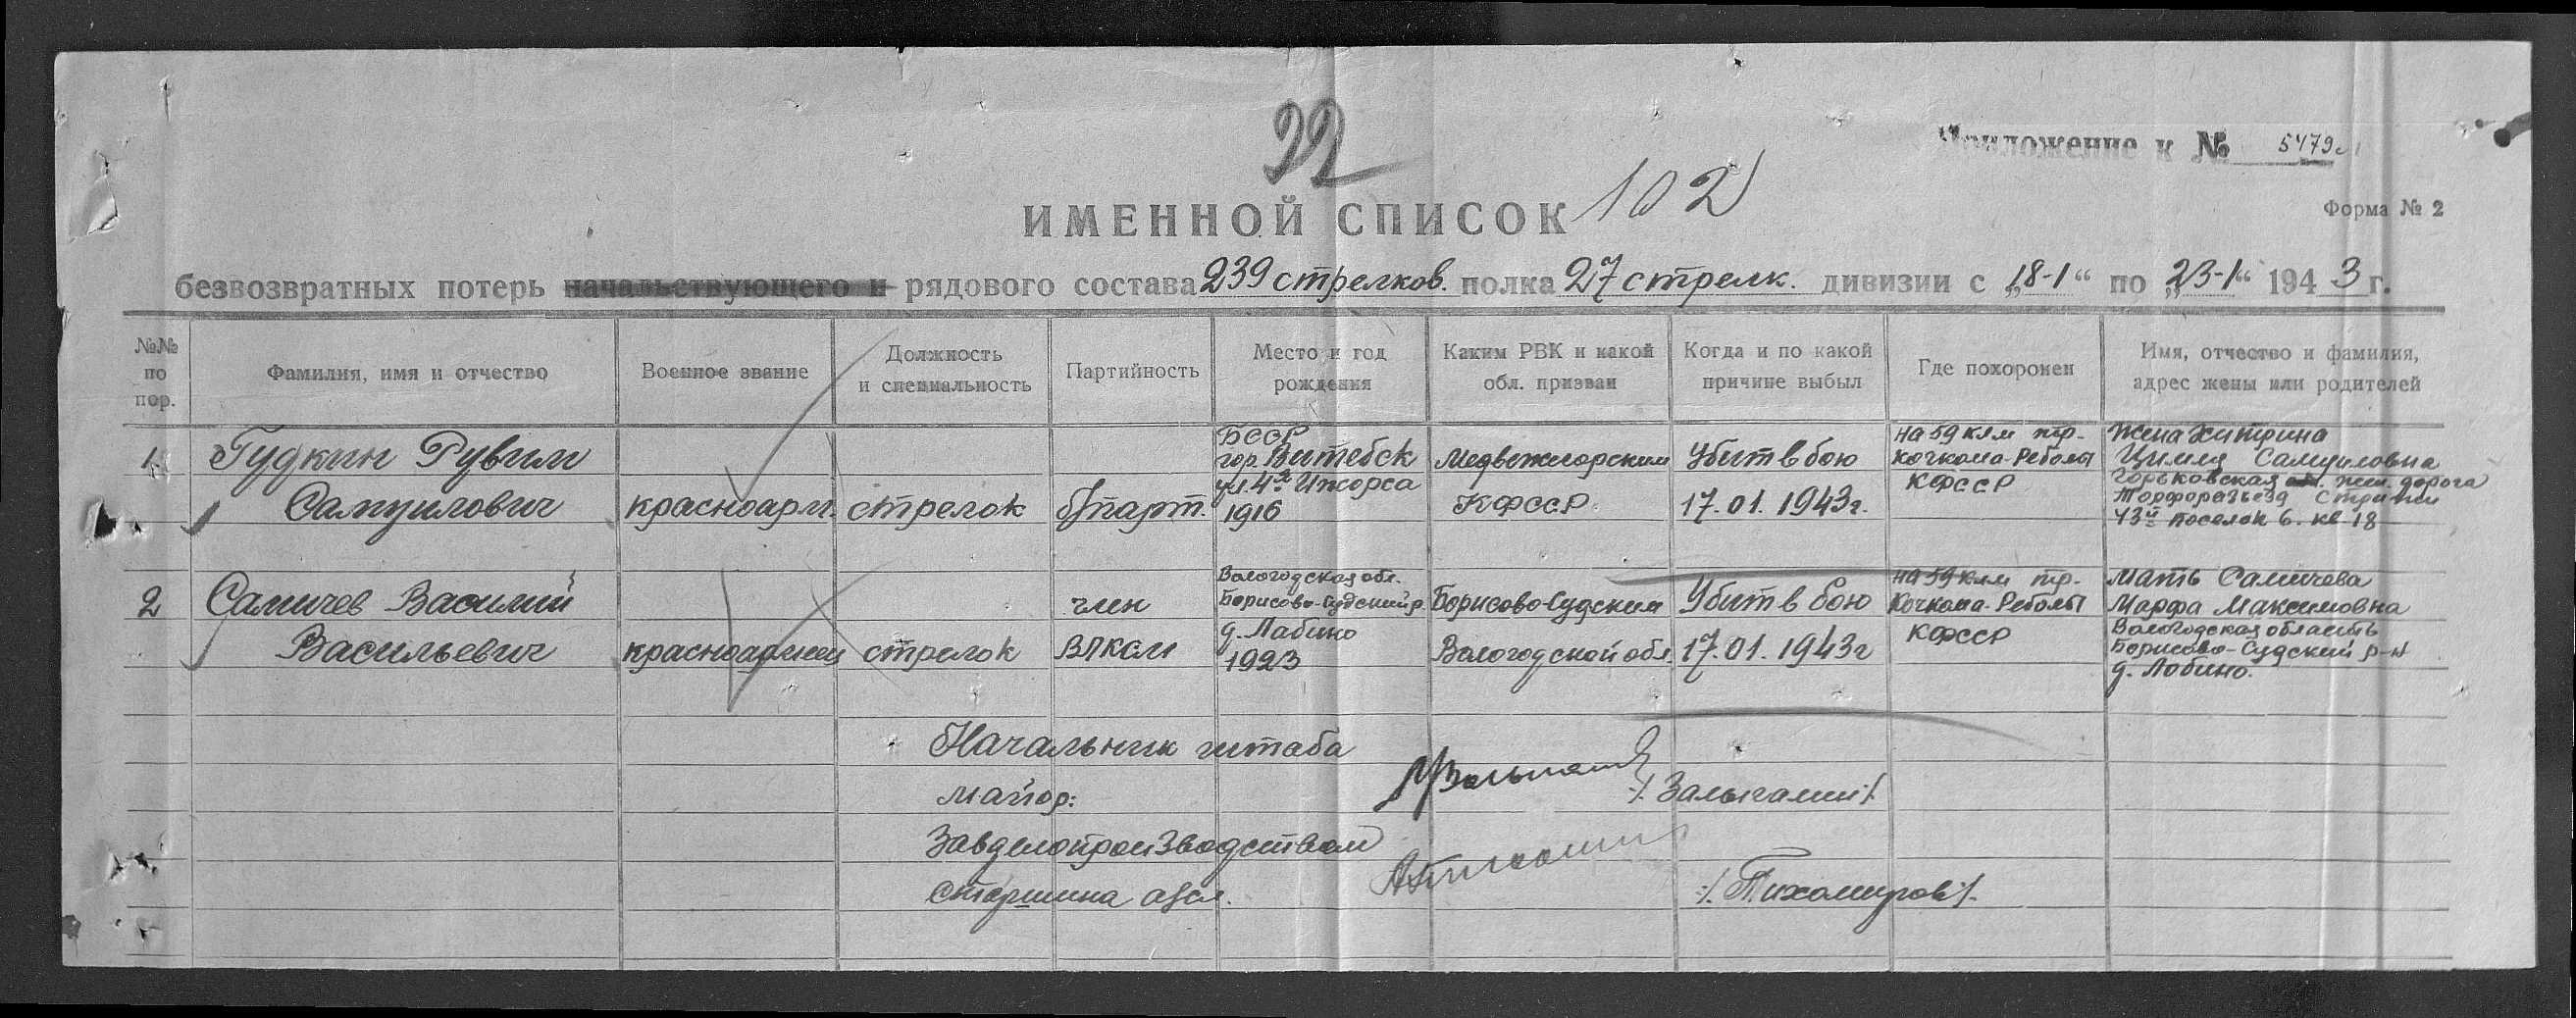 22
Приложение к № 5479с
102
ИМЕННОЙ СПИСОК
Форма № 2
безвозвратных потерь начальствующего и рядового состава 239 стрелков. полка 27 стрелк. дивизии с „18-1“ по „23-1“ 1943 г.
№№ по пор.
Фамилия, имя и отчество
Военное звание
Должность и специальность
Партийность
Место и год рождения
Каким РВК и какой обл. призван
Когда и по какой причине выбыл
Где похоронен
Имя, отчество и фамилия, адрес жены или родителей
1.
Гудкин Рувим
Самуилович
красноарм.
стрелок
б/парт.
БССР
гор. Витебск
ул. 4я
1916
Медвежегорским
КФССР.
Убит в бою
17.01.1943г.
на 59 клм тр.
Кочкома-Реболы
КФССР
Жена Хитрина
Цимля Самуиловна
Горьковская жел. дорога
Торфоразъезд
43й поселок 6. кв 18
2
Самичев Василий
Васильевич
красноармеец
стрелок
член
ВЛКСМ
Вологодская обл.
Борисово-Судский р.
д. Лабино
1923
Борисово-Судским
Вологодской обл.
Убит в бою
17.01.1943г
на 59 клм тр.
Кочкома-Реболы
КФССР
Мать Самичева
Марфа Максимовна
Вологодская область
Борисово-Судский р-н
д. Лобино.
Начальник штаба
майор:
/Залыгалин/
Завделопроизводством
старшина адм.
/Тихомиров/.